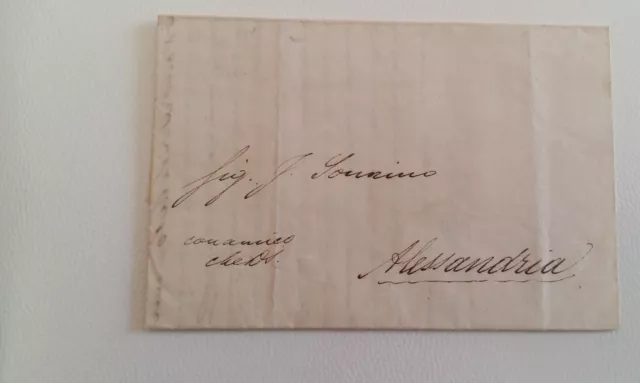 Sig. J. Sonnino
con amico
che Ds.
Alessandria